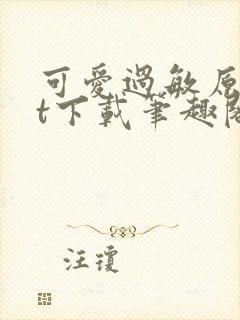 可愛過敏原
t下載筆趣閣
汪瓊